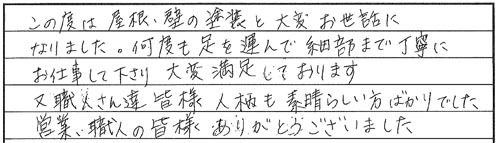 この度は屋根、壁の塗装と大変お世話に
なりました。何度も足を運んで細部まで丁寧に
お仕事して下さり大変満足しております
又職人さん達皆様人柄も素晴らしい方ばかりでした
営業、職人の皆様ありがとうございました